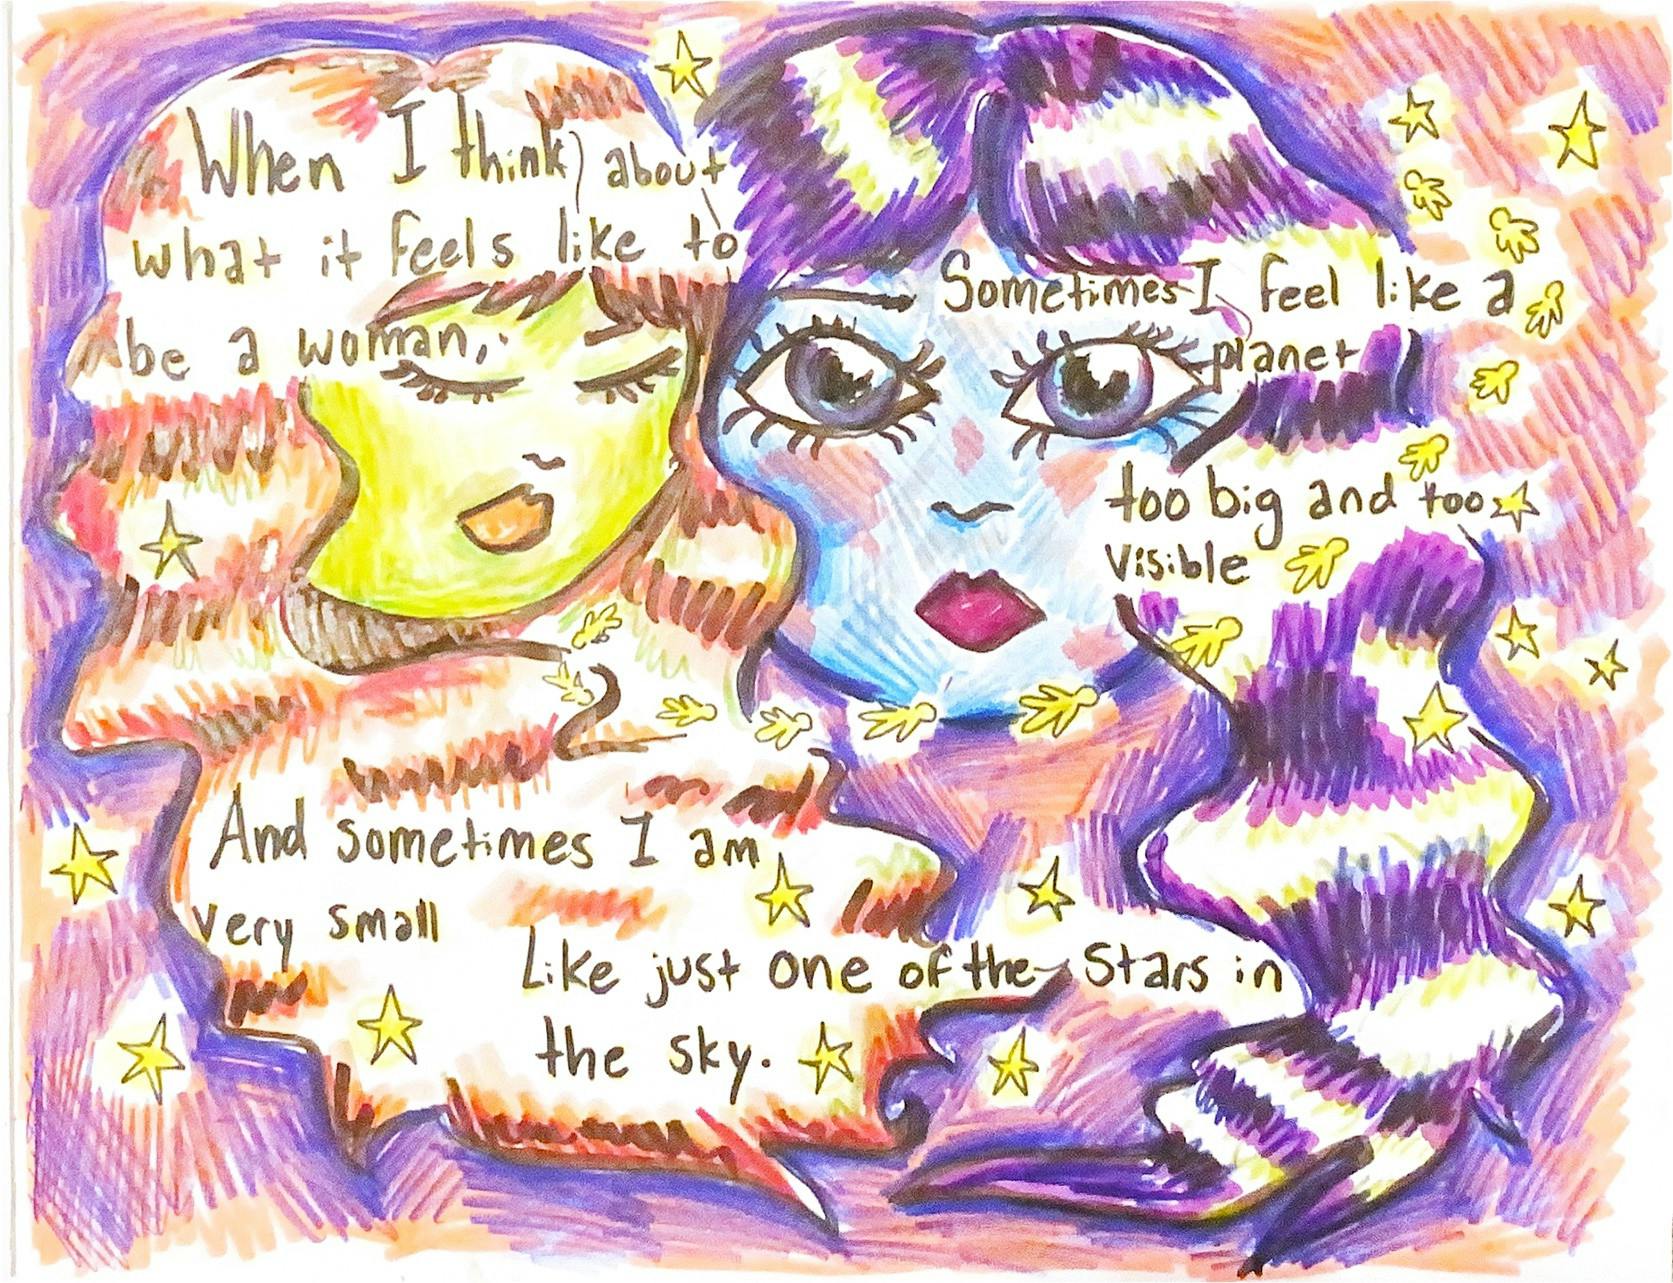 When I think about
what it feels like to
be a woman,
Sometimes I feel like a
planet
too big and too
visible
And sometimes I am
very small
Like just one of the stars in
the sky.